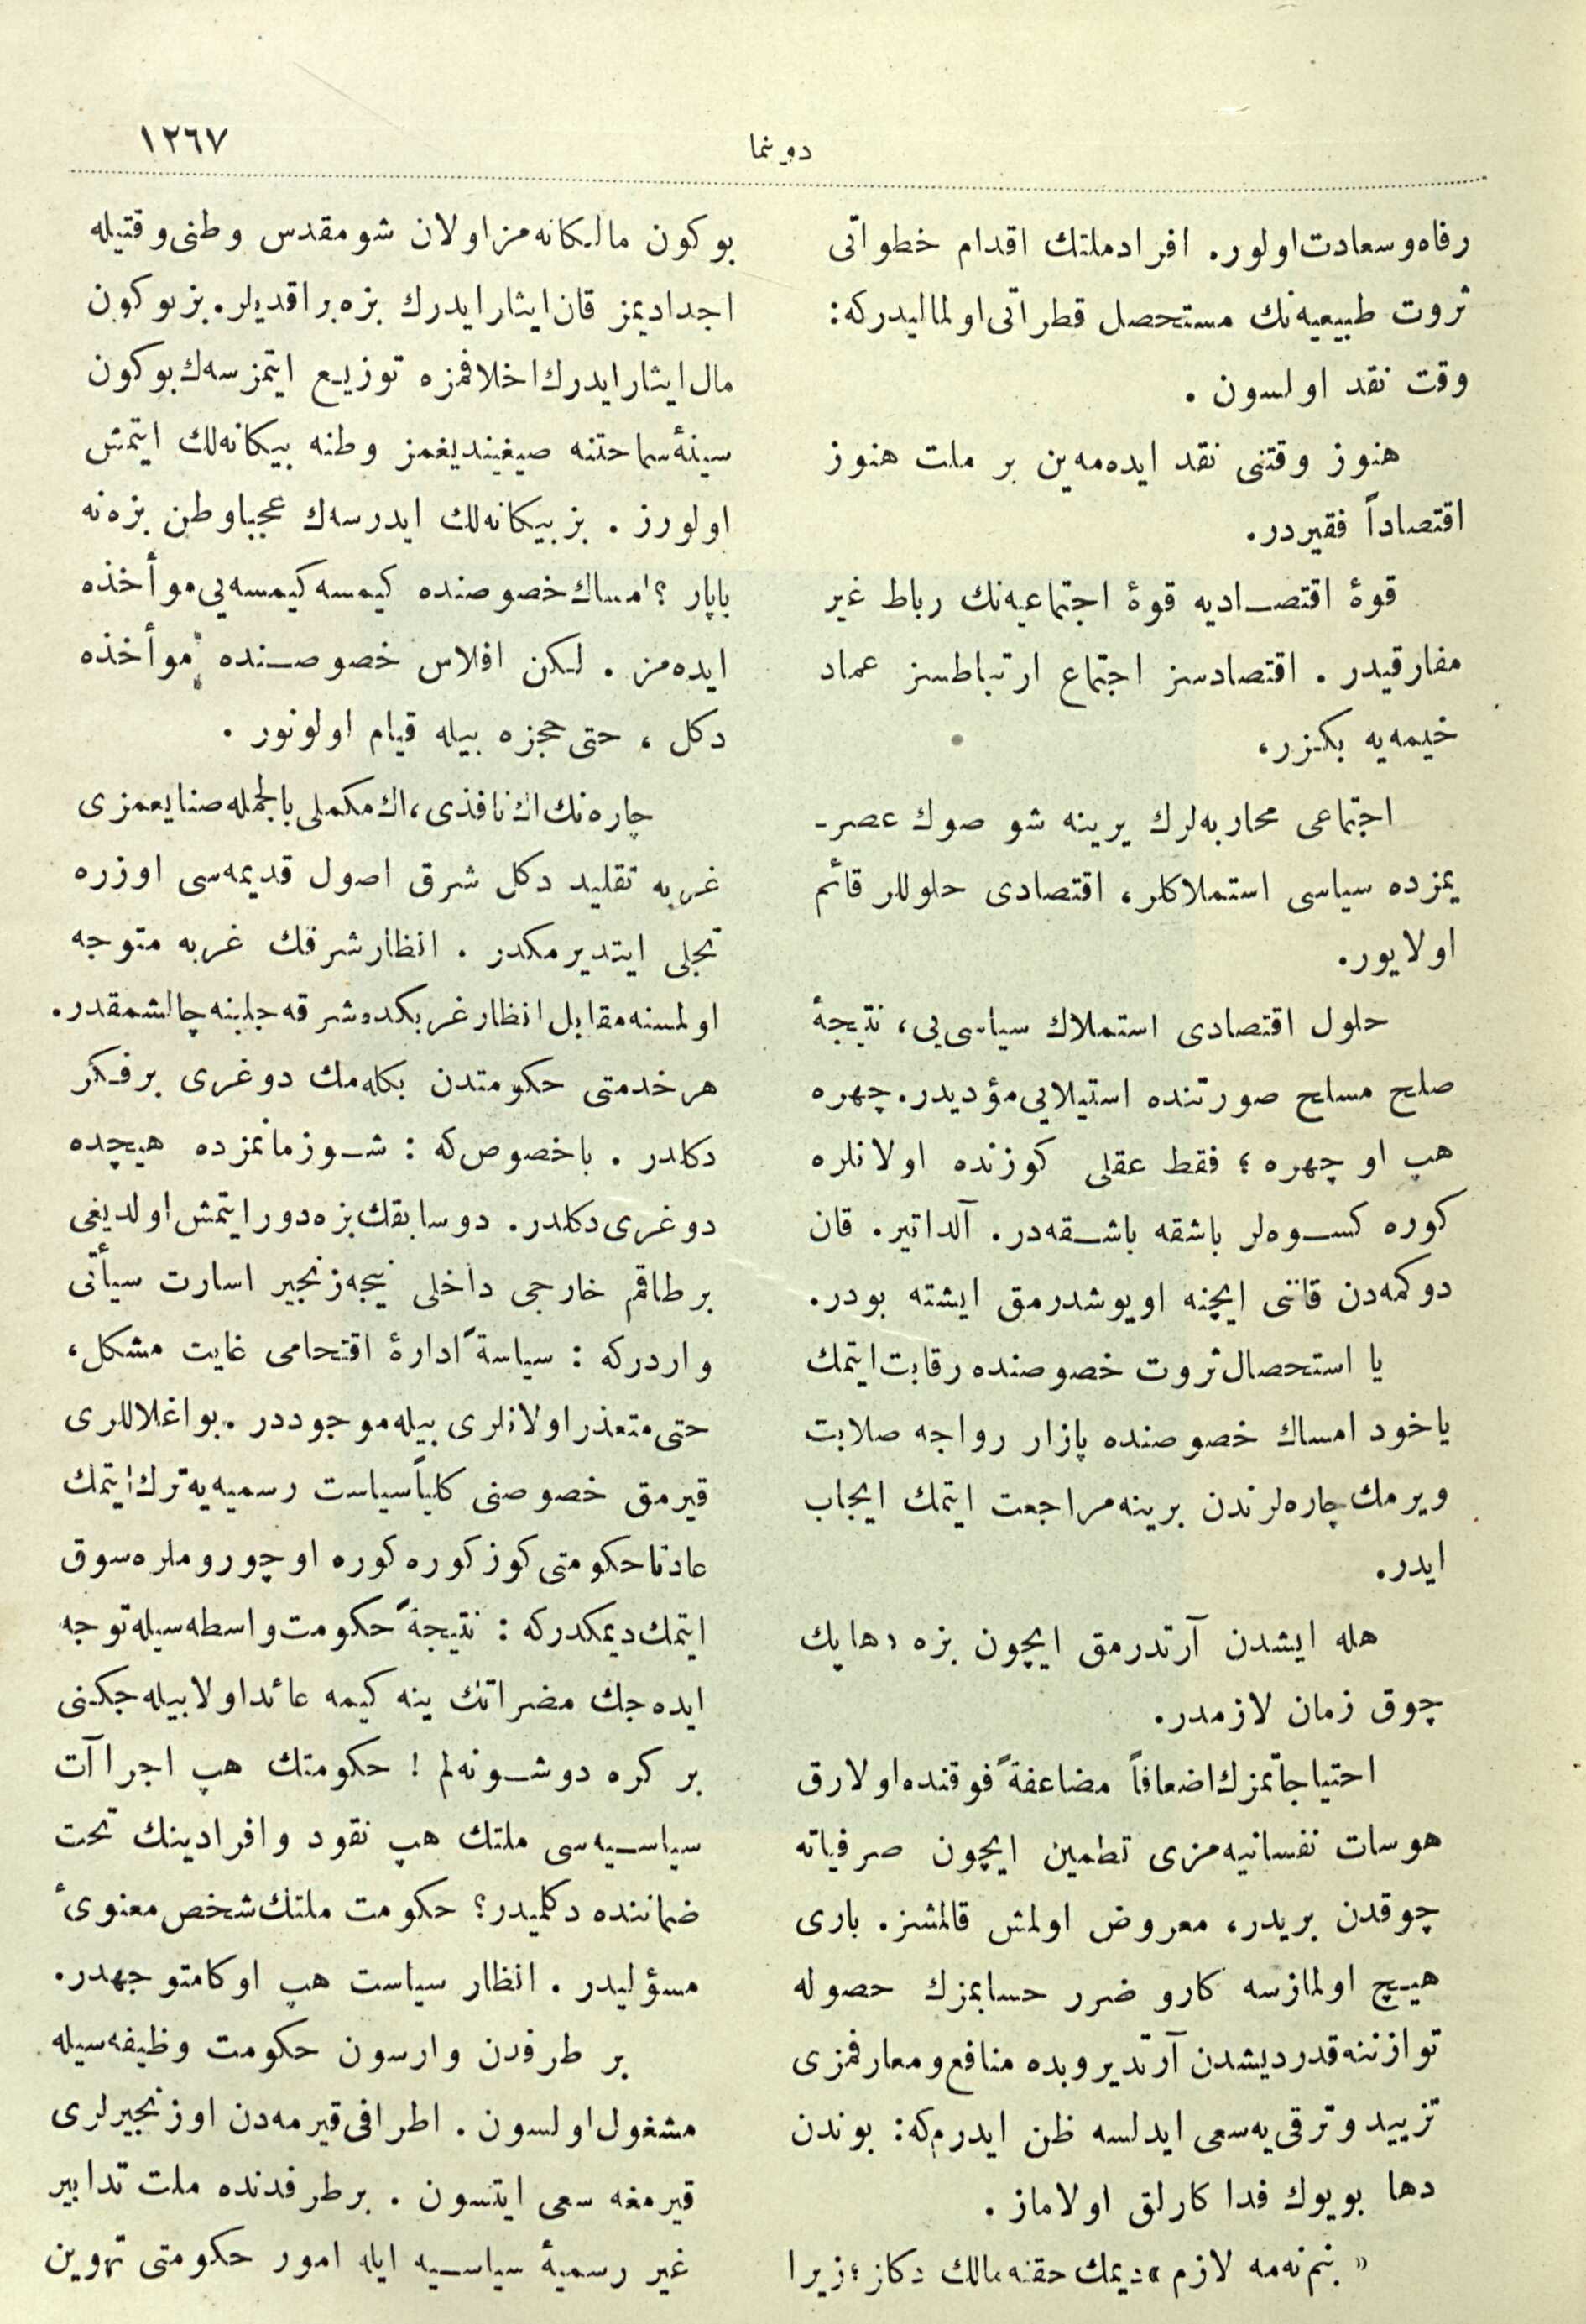 دونما
١٢٦٧
رفاه و سعادت اولور. افراد ملتك اقدام خطواتی
ثروت طبیعیه‌نك مستحصل قطراتی اولمالیدركه:
وقت نقد اولسون .
هنوز وقتنی نقد ایده‌مه‌ین بر ملت هنوز
اقتصاداً فقیردر.
قوهٔ اقتصادیه قوهٔ اجتماعیه‌نك رباط غیر
مفارقیدر . اقتصادسز اجتماع ارتباطسز عماد
خیمه‌یه بكزر.
اجتماعی محاربه‌لرك یرینه شو صوك عصر-
یمزده سیاسی استملاكلر، اقتصادی حلوللر قائم
اولایور.
حلول اقتصادی استملاك سیاسی‌یی، نتیجهٔ
صلح مسلح صورتنده استیلایی مؤدیدر. چهره
هپ او چهره ؛ فقط عقلی كوزنده اولانلره
كوره كسوه‌لر باشقه باشقه‌در. آلداتیر. قان
دوكمه‌دن قاننی ایچنه اویوشدرمق ایشته بودر.
یا استحصال ثروت خصوصنده رقابت ایتمك
یاخود امساك خصوصنده پازار رواجه صلابت
ویرمك چاره‌لرندن برینه مراجعت ایتمك ایجاب
ایدر.
هله ایشدن آرتدرمق ایچون بزه دها پك
چوق زمان لازمدر.
احتیاجاتمزك اضعافاً مضاعفةً فوقنده اولارق
هوسات نفسانیه‌مزی تطمین ایچون صرفیاته
چوقدن بریدر، معروض اولمش قالمشز. باری
هیچ اولمازسه كارو ضرر حسابمزك حصوله
توازننه قدر دیشدن آرتدیروبده منافع و معارفمزی
تزیید و ترقی‌یه سعی ایدلسه ظن ایدرم‌كه: بوندن
دها بویوك فداكارلق اولاماز .
« بنم نه‌مه لازم » دیمك حقنه مالك دكلز ؛ زیرا
بوكون مالكانه‌مز اولان شو مقدس وطنی وقتیله
اجدادیمز قان ایثار ایدرك بزه براقدیلر. بز بوكون
مال ایثار ایدرك اخلافمزه توزیع ایتمزسه‌ك بوكون
سینهٔ سماحتنه صیغیندیغمز وطنه بیكانه‌لك ایتمش
اولورز . بز بیكانه‌لك ایدرسه‌ك عجبا وطن بزه نه
یاپار ؟ امساك خصوصنده كیمسه كیمسه‌یی موأخذه
ایده‌مز . لكن افلاس خصوصنده موأخذه
دكل ، حتی حجزه بیله قیام اولونور .
چاره‌نك اك نافذی، اك مكملی بالجمله صنایعمزی
غربه تقلید دكل شرق اصول قدیمه‌سی اوزره
تجلی ایتدیرمكدر . انظار شرقك غربه متوجه
اولمسنه مقابل انظار غربكده شرقه جلبنه چالشمقدر.
هر خدمتی حكومتدن بكله‌مك دوغری بر فكر
دكلدر . باخصوص كه : شو زمانمزده هیچده
دوغری دكلدر. دو سابقك بزه دور ایتمش اولدیغی
بر طاقم خارجی داخلی نیجه زنجیر اسارت سیأتی
واردركه : سیاسةً ادارهٔ اقتحامی غایت مشكل،
حتی متعذر اولانلری بیله موجوددر . بو اغلاللری
قیرمق خصوصنی كلیاً سیاست رسمیه‌یه ترك ایتمك
عادتا حكومتی كوز كوره كوره اوچوروملره سوق
ایتمك دیمكدركه : نتیجةً حكومت واسطه‌سیله توجه
ایده‌جك مضراتك ینه كیمه عائد اولابیله‌جكنی
بر كره دوشونه‌لم ! حكومتك هپ اجراآت
سیاسیه‌سی ملتك هپ نقود و افرادینك تحت
ضماننده دكلمیدر؟ حكومت ملتك شخص معنویٔ
مسؤلیدر . انظار سیاست هپ اوكا متوجهدر.
بر طرفدن وارسون حكومت وظیفه‌سیله
مشغول اولسون . اطرافی قیرمه‌دن او زنجیرلری
قیرمغه سعی ایتسون . بر طرفدنده ملت تدابیر
غیر رسمیهٔ سیاسیه ایله امور حكومتی تهوین